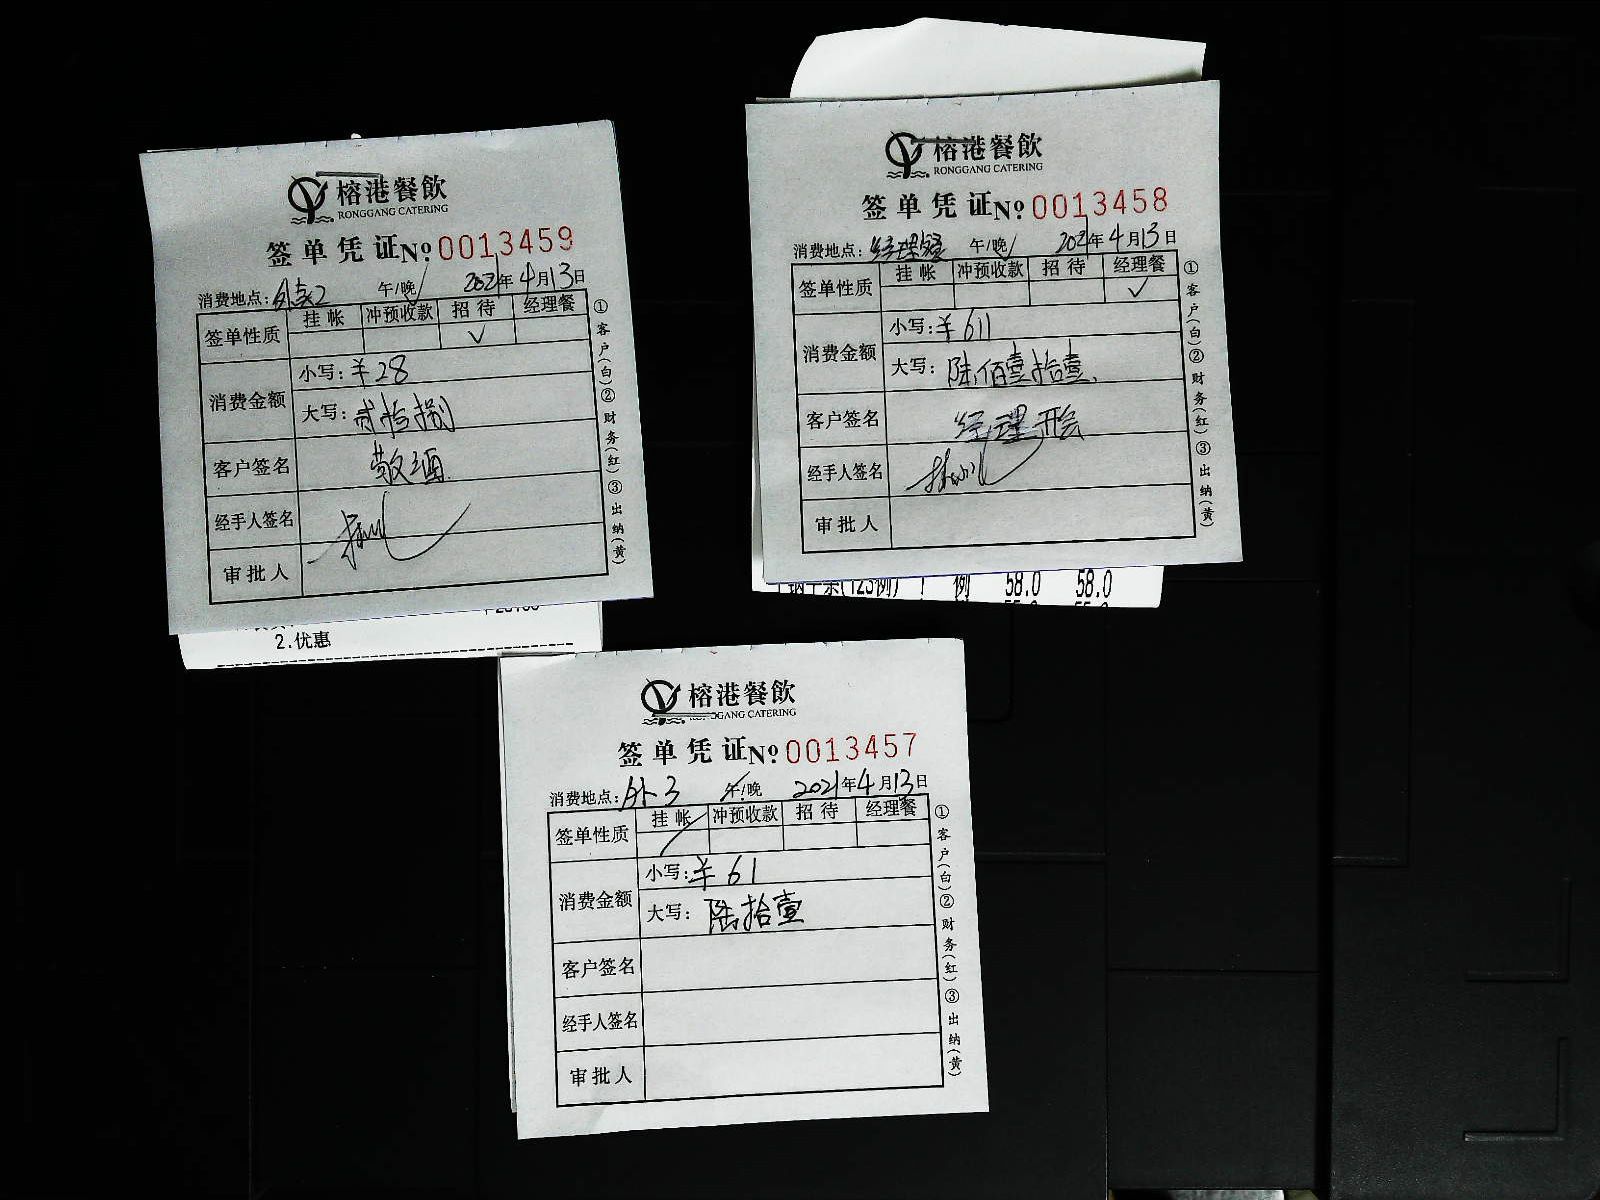 榕港餐飲
RONGGANG CATERING
签单凭证№0013459
消费地点: 午/晚 2021年4月13日
签单性质 挂帐 冲预收款 招待 经理餐
✓
消费金额 小写:￥28
大写:贰拾捌
客户签名 敬酒
经手人签名
审批人
①客户(白)②财务(红)③出纳(黄)
2.优惠
榕港餐飲
RONGGANG CATERING
签单凭证№0013458
消费地点:经理餐 午/晚 2021年4月13日
签单性质 挂帐 冲预收款 招待 经理餐
✓
消费金额 小写:￥611
大写:陆佰壹拾壹
客户签名 经理开会
经手人签名
审批人
①客户(白)②财务(红)③出纳(黄)
58.0 58.0
榕港餐飲
GANG CATERING
签单凭证№0013457
消费地点:外3 午/晚 2021年4月13日
签单性质 挂帐 冲预收款 招待 经理餐
消费金额 小写:￥61
大写:陆拾壹
客户签名
经手人签名
审批人
①客户(白)②财务(红)③出纳(黄)